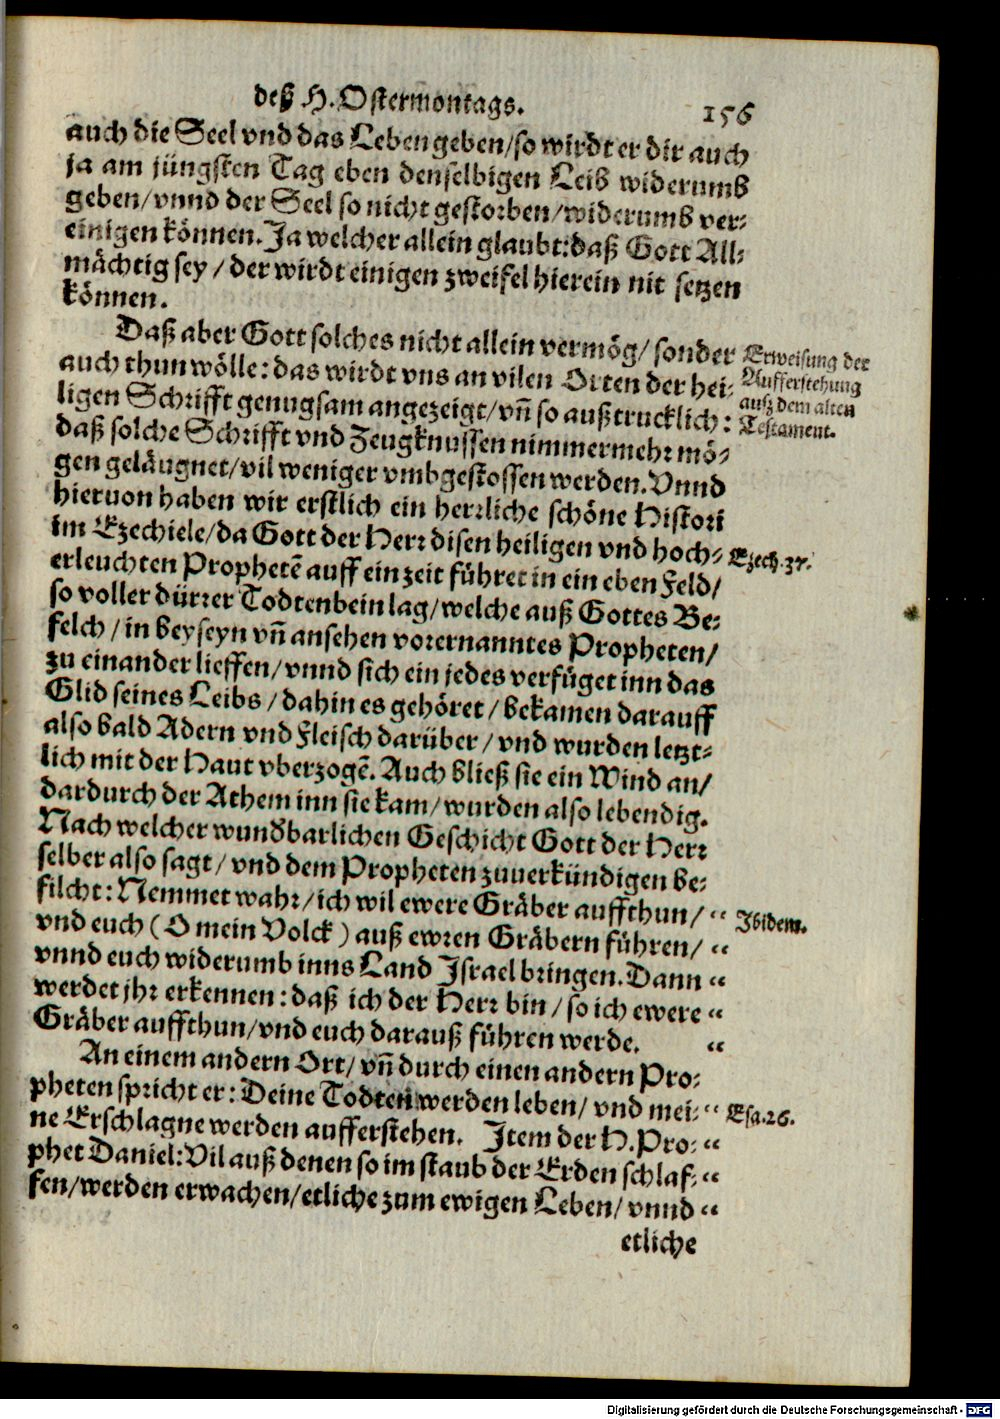 deß H. Ostermontags. 156
auch die Seel vnd das Leben geben/ so wirdt er dir auch
ja am jüngsten Tag eben denselbigen Leib widerumb
geben/ vnnd der Seel so nicht gestorben/ widerumb ver-
einigen können. Ja welcher allein glaubt: daß Gott All-
mächtig sey / der wirdt einigen zweifel hierein nit setzen
können.
Daß aber Gott solches nicht allein vermög/ sonder
auch thun wölle: das wirdt vns an vilen Orten der hei-
ligen Schrifft genugsam angezeigt/ vn̄ so außtrucklich:
daß solche Schrifft vnd Zeugknussen nimmermehr mö-
gen geläugnet/ vil weniger vmbgestossen werden. Vnnd
hieruon haben wir erstlich ein herrliche schöne Histori
im Ezechiele/ da Gott der Herr disen heiligen vnd hoch-
erleuchten Prophetē auff ein zeit führet in ein eben Feld/
so voller dürrer Todtenbein lag/ welche auß Gottes Be-
felch / in beyseyn vn̄ ansehen vorernanntes Propheten/
zu einander lieffen/ vnnd sich ein jedes verfüget inn das
Glid seines Leibs / dahin es gehöret / bekamen darauff
also bald Adern vnd Fleisch darüber / vnd wurden letzt-
lich mit der Haut vberzogē. Auch bließ sie ein Wind an/
dardurch der Athem inn sie kam/ wurden also lebendig.
Nach welcher wundbarlichen Geschicht Gott der Herr
selber also sagt/ vnd dem Propheten zuuerkündigen be-
filcht: Nemmet wahr/ ich wil ewere Gräber auffthun/ “
vnd euch ( O mein Volck ) auß ewren Gräbern führen/ “
vnnd euch widerumb inns Land Jsrael bringen. Dann “
werdet jhr erkennen: daß ich der Herr bin / so ich ewere “
Gräber auffthun/ vnd euch darauß führen werde. “
An einem andern Ort/ vn̄ durch einen andern Pro-
pheten spricht er: Deine Todten werden leben/ vnd mei- “
ne Erschlagne werden aufferstehen. Jtem der H. Pro- “
phet Daniel: Vil auß denen so im staub der Erden schlaf- “
fen/ werden erwachen/ etliche zum ewigen Leben/ vnnd “
etliche
Erweisung der
Aufferstehung
auß dem alten
Testament.
Ezech. 37.
Jbidem.
Esa. 26.
Digitalisierung gefördert durch die Deutsche Forschungsgemeinschaft - DFG